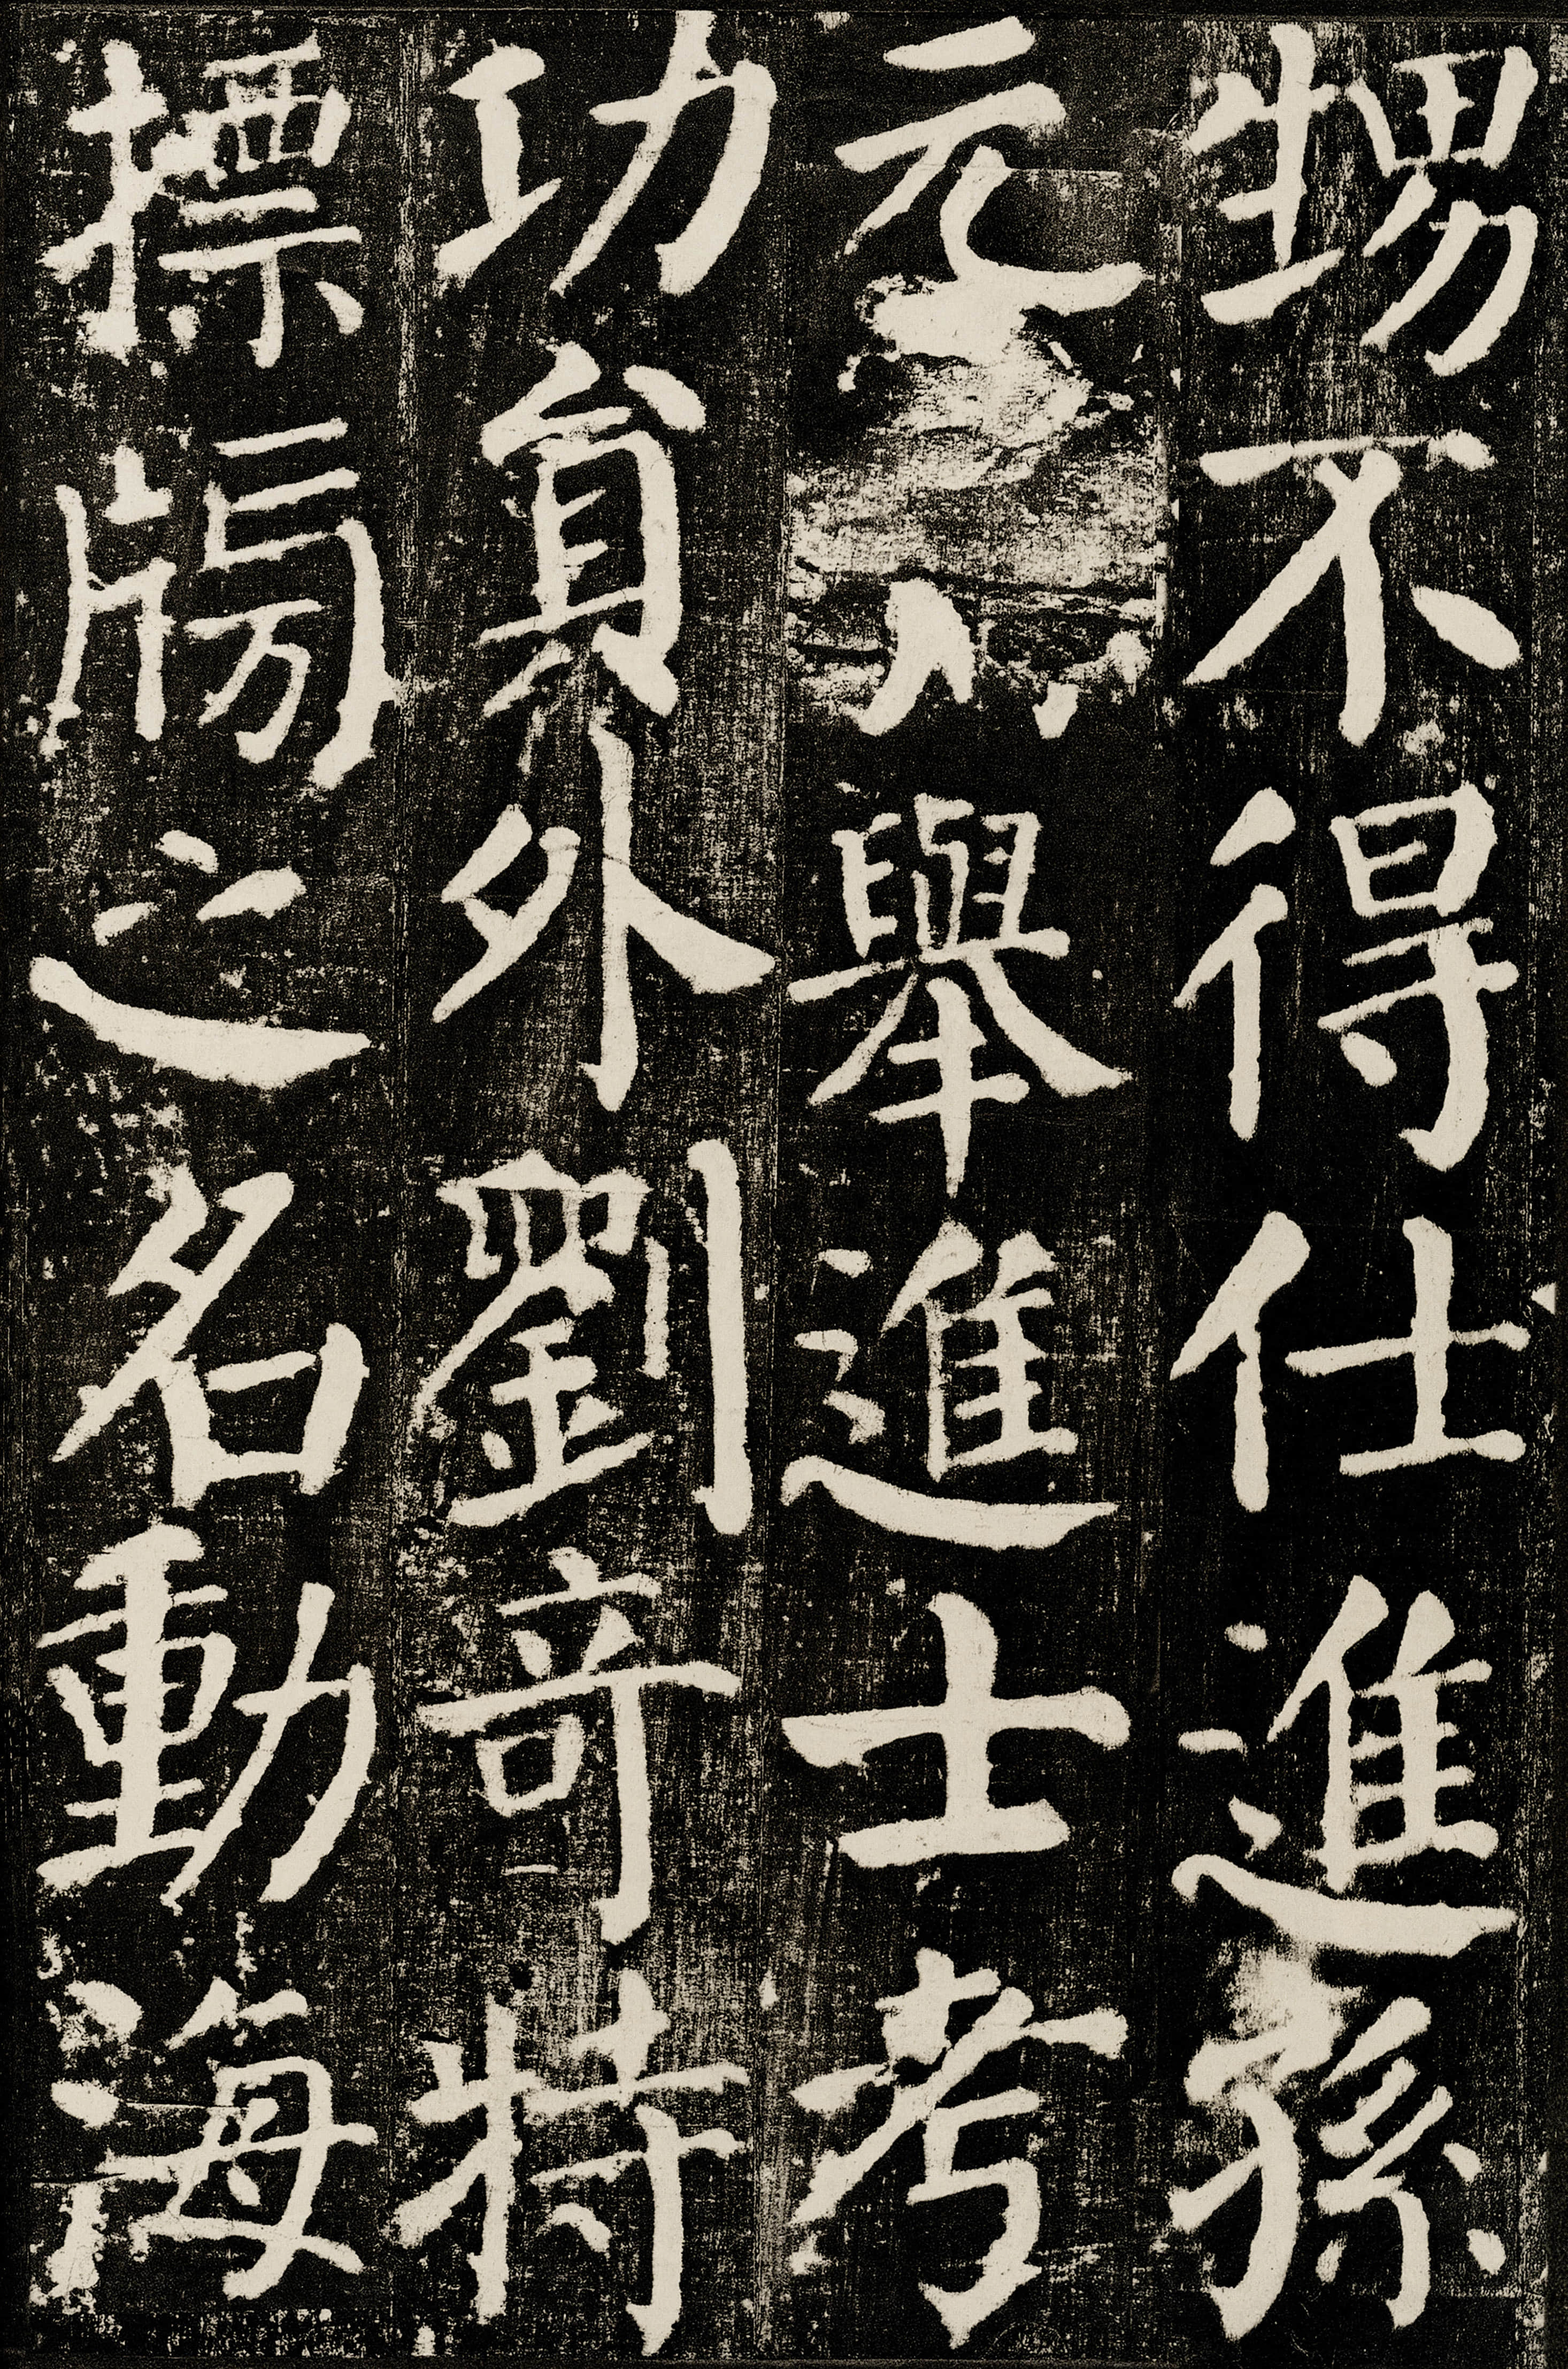 甥不得仕進孫
元舉進士考
功員外劉奇特
摽牓之名動海